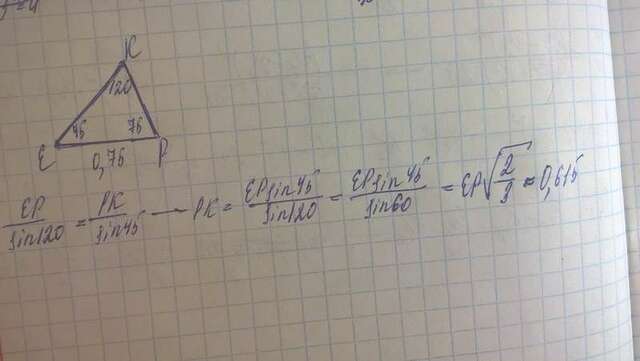 K
120
45 75
E 0,75 P
EP/sin120 = PK/sin45 — PK = EP sin45/sin120 = EP sin45/sin60 = EP√(2/3) ≈ 0,615